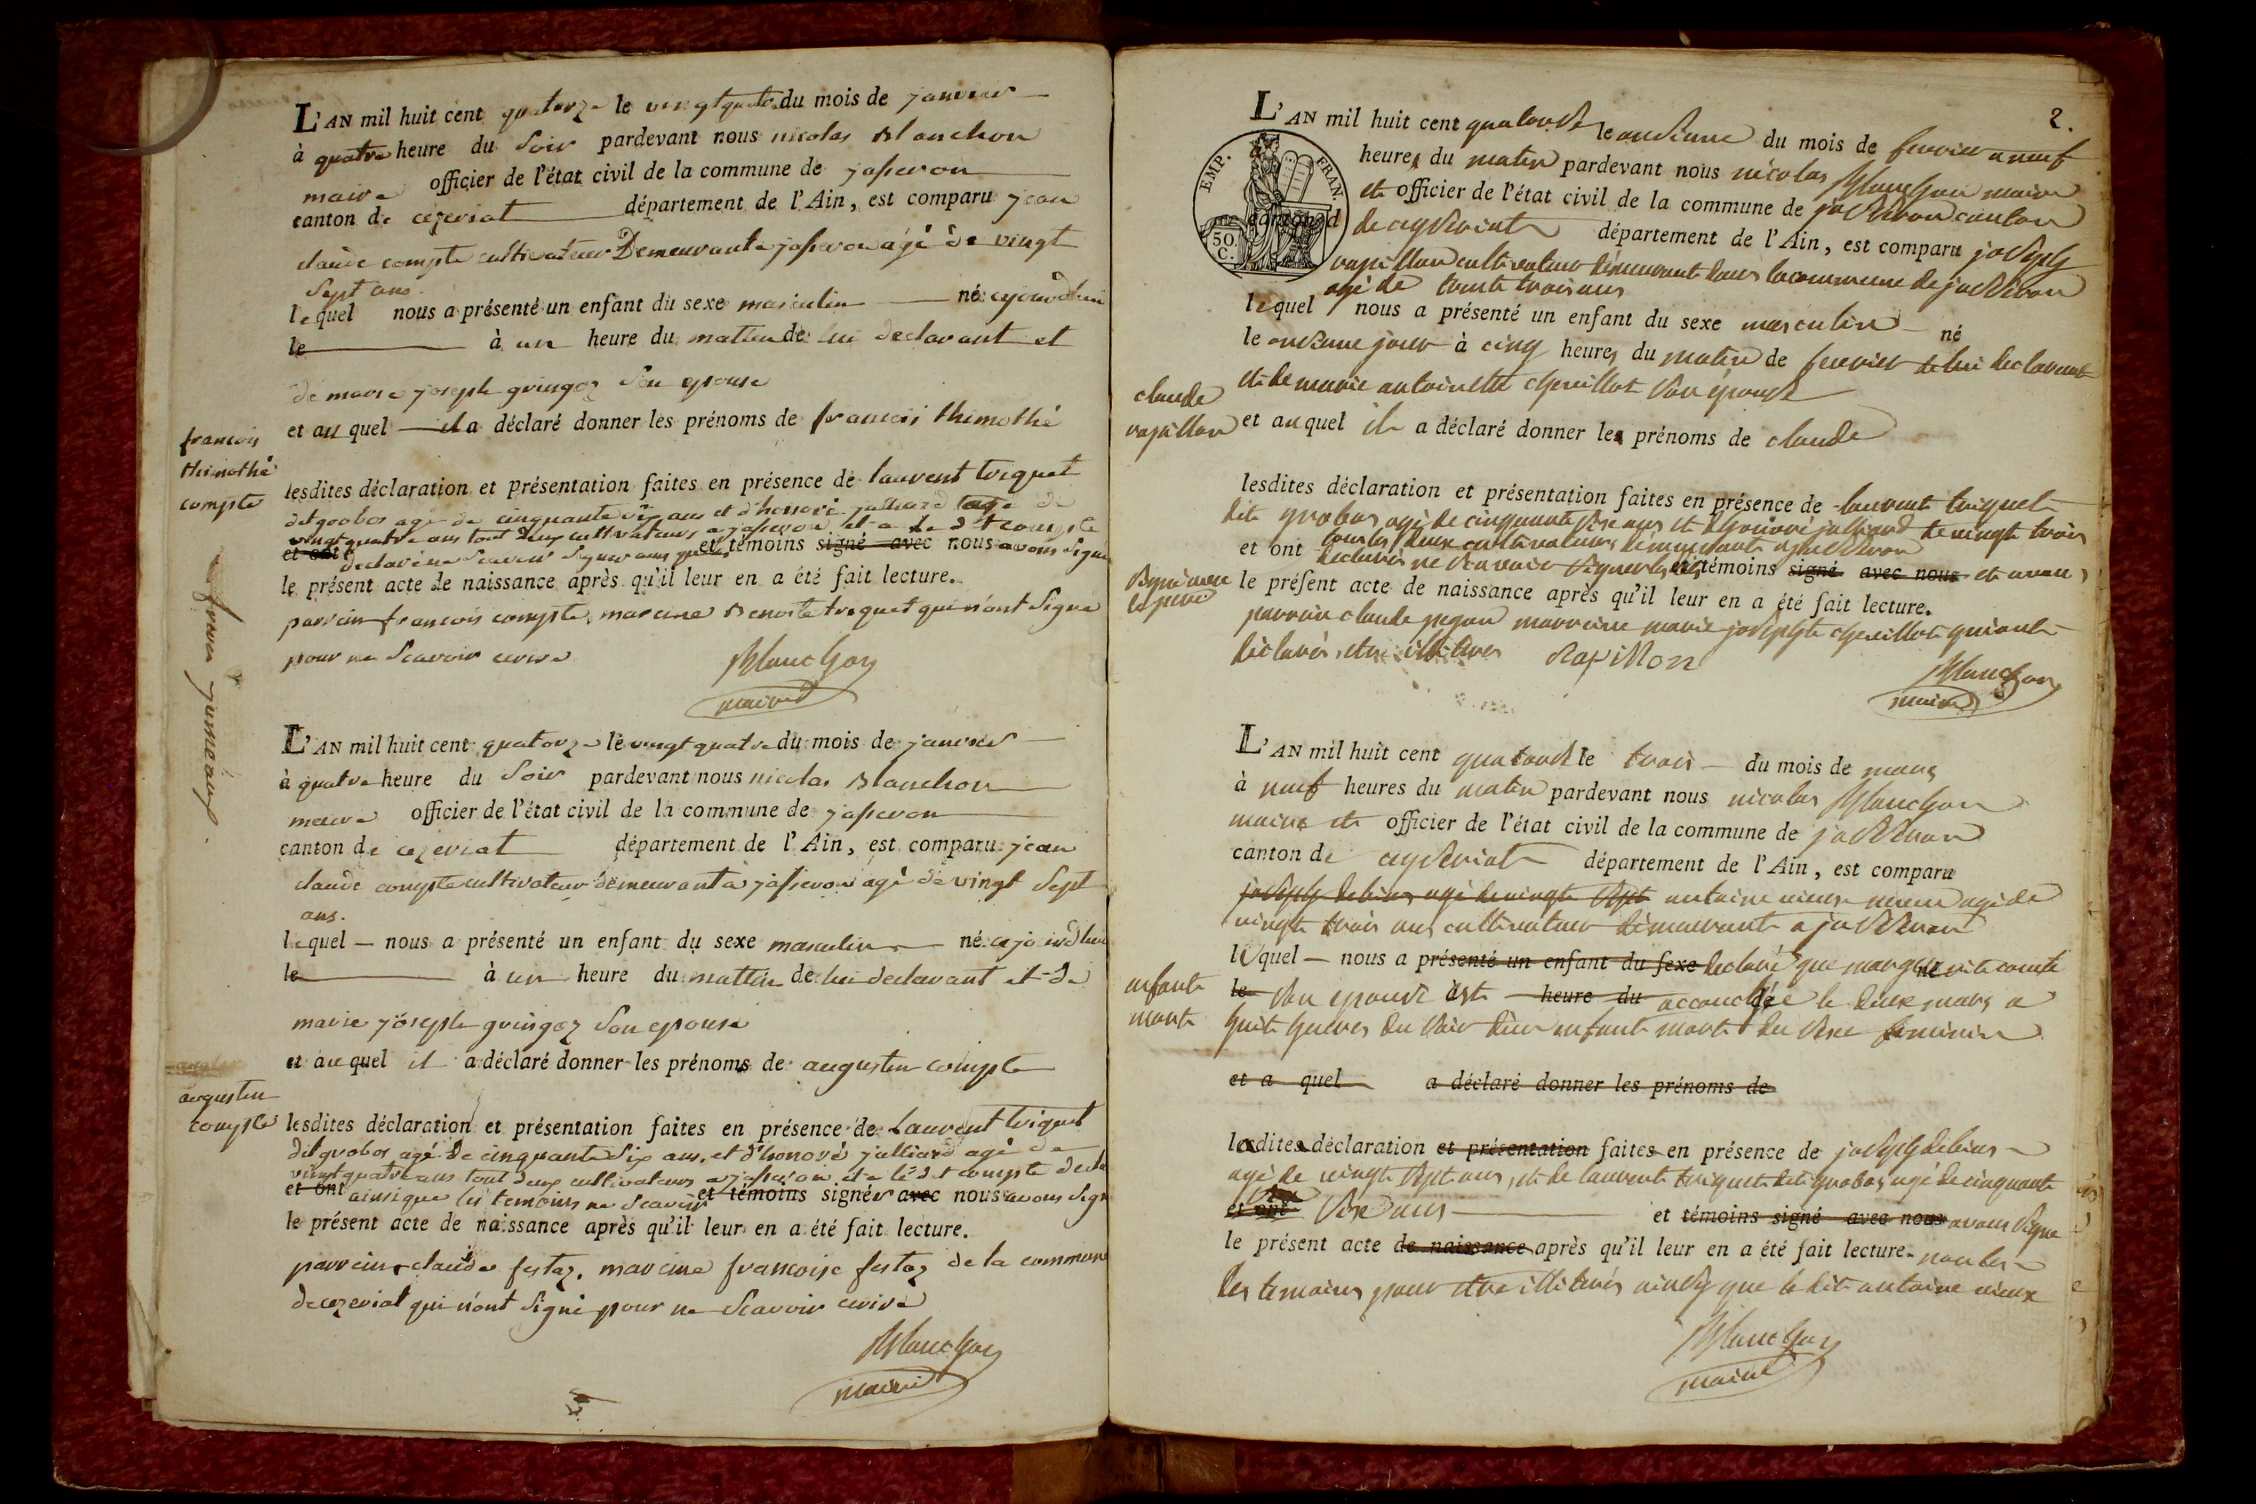 L'AN mil huit cent quatorze le vingt quatre du mois de janvier
à quatre heure du soir pardevant nous nicolas Blanchon
maire officier de l'état civil de la commune de jasseron
canton de cezeriat département de l'Ain, est comparu jean
claude compte cultivateur Demeurant a jasseron agé de vingt
sept ans
lequel nous a présenté un enfant du sexe masculin né cejourdhui
le à un heure du mattin de lui declarant et
de marie joseph gringoz son epouse
et au quel il a déclaré donner les prénoms de francois thimothé
francois
thimothé
compte
lesdites déclaration et présentation faites en présence de laurent triquet
dit grobos agé de cinquante six ans et d'honoré julliard agé de
vingt quatre ans tout deux cultivateurs a jasseron et a le dt compte
et ont declaré ne scavoir signer et témoins signé avec nous avons signé
le présent acte de naissance après qu'il leur en a été fait lecture.
parrein francois compte, mareine Benoite triquet qui n'ont signé
pour ne scavoir ecrire
Blanchon
maire
frères jumeaux
L'AN mil huit cent quatorze le vingt quatre du mois de janvier
à quatre heure du soir pardevant nous nicolas Blanchon
maire officier de l'état civil de la commune de jasseron
canton de cezeriat département de l'Ain, est comparu jean
claude compte cultivateur demeurant a jasseron agé de vingt sept
ans.
lequel nous a présenté un enfant du sexe masculin né cejourdhui
le à un heure du mattin de lui declarant et de
marie joseph gringoz son epouse
et au quel il a déclaré donner les prénoms de augustin compte
augustin
compte
lesdites déclaration et présentation faites en présence de Laurent triquet
dit grobos agé de cinquante six ans, et d'honoré julliard agé de
vingt quatre ans tout deux cultivateurs a jasseron et a le dt compte decla
et ont ainsi que les temoins ne scavoir et témoins signer avec nous avons sign
le présent acte de naissance après qu'il leur en a été fait lecture.
parrein claude festaz, mareine francoise festaz de la commune
de cezeriat qui n'ont signé pour ne scavoir ecrire
Blanchon
maire
2.
EMP. FRAN.
50. C.
L'AN mil huit cent quatorze le onzieme du mois de fevrier a neuf
heures du matin pardevant nous nicolas Blanchon maire
et officier de l'état civil de la commune de jasseron canton
de ceyzeriat département de l'Ain, est comparu joseph
rapillon cultivateur demeurant dans la commune de jasseron
agé de trente trois ans
lequel nous a présenté un enfant du sexe masculin né
le onzieme jour à cinq heures du matin de fevrier de lui declarant
et de marie antoinette chevillot son épouse
claude
rapillon
et au quel il a déclaré donner les prénoms de claude
lesdites déclaration et présentation faites en présence de laurent triquet
dit grobos agé de cinquante six ans et d'honoré julliard de vingt trois
tous les deux cultivateurs demeurant a jasseron
et ont declarés ne scavoir signer et témoins signé avec nous et avons
signé avec
le pere
le présent acte de naissance après qu'il leur en a été fait lecture.
parrain claude marraine marie josephte chevillot qui ont
déclarés etre illitérés
rapillon
Blanchon
maire
L'AN mil huit cent quatorze le trois du mois de mars
à neuf heures du matin pardevant nous nicolas Blanchon
maire et officier de l'état civil de la commune de jasseron
canton de ceyzeriat département de l'Ain, est comparu
joseph debias agé de vingt sept antoine vieux agé de
vingt trois ans cultivateur demeurant a jasseron
lequel nous a présenté un enfant du sexe declaré que margueritte comte né
le son epouse est heure du accouchée le deux mars a
huit heures du soir d'un enfant mort du sexe feminin
enfant
mort
et a quel a déclaré donner les prénoms de
lesdites déclaration et présentation faites en présence de joseph debias
agé de vingt sept ans, et de laurent triquet dit grobos agé de cinquante
et ont six ans et témoins signé avec nous avons signé
le présent acte de naissance après qu'il leur en a été fait lecture. non les
des temoins pour etre illitérés ainsy que le dit antoine vieux
Blanchon
maire